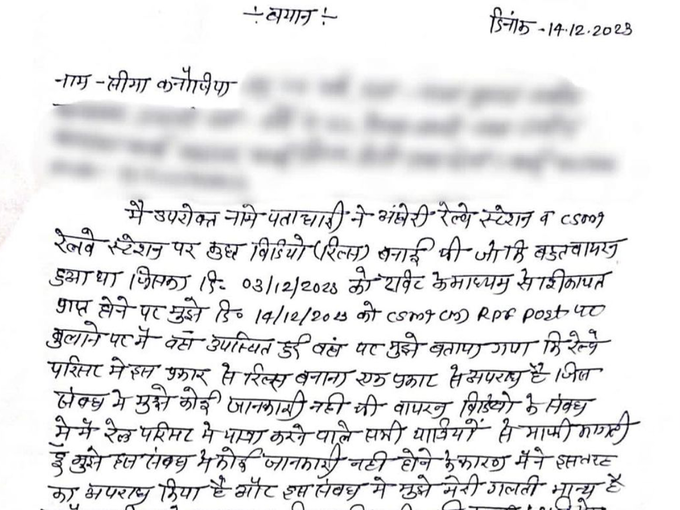 ÷ बयान ÷
दिनांक - 14.12.2023
नाम - सीमा कनौजिया
मै उपरोक्त नामे पताधारी ने अंधेरी रेल्वे स्टेशन व CSMT
रेलवे स्टेशन पर कुछ विडियो (रिल्स) बनाई थी जो कि बहुत वायरल
हुआ था जिसका दि- 03/12/2023 को ट्वीट के माध्यम से शिकायत
प्राप्त होने पर मुझे दि० 14/12/2023 को CSMT (M) RPF POST पर
बुलाने पर मै वहां उपस्थित हुई वहां पर मुझे बताया गया कि रेल्वे
परिसर मे इस प्रकार से रिल्स बनाना एक प्रकार से अपराध है। जिस
संबंध मे मुझे कोई जानकारी नही थी वायरल विडियो के संबंध
मे मै रेल परिसर मे यात्रा करने वाले सभी यात्रियों से माफी मांगती
हूं मुझे इस संबंध मे कोई जानकारी नही होने के कारण मैने इस तरह
का अपराध किया है और इस संबंध मे मुझे मेरी गलती मान्य है